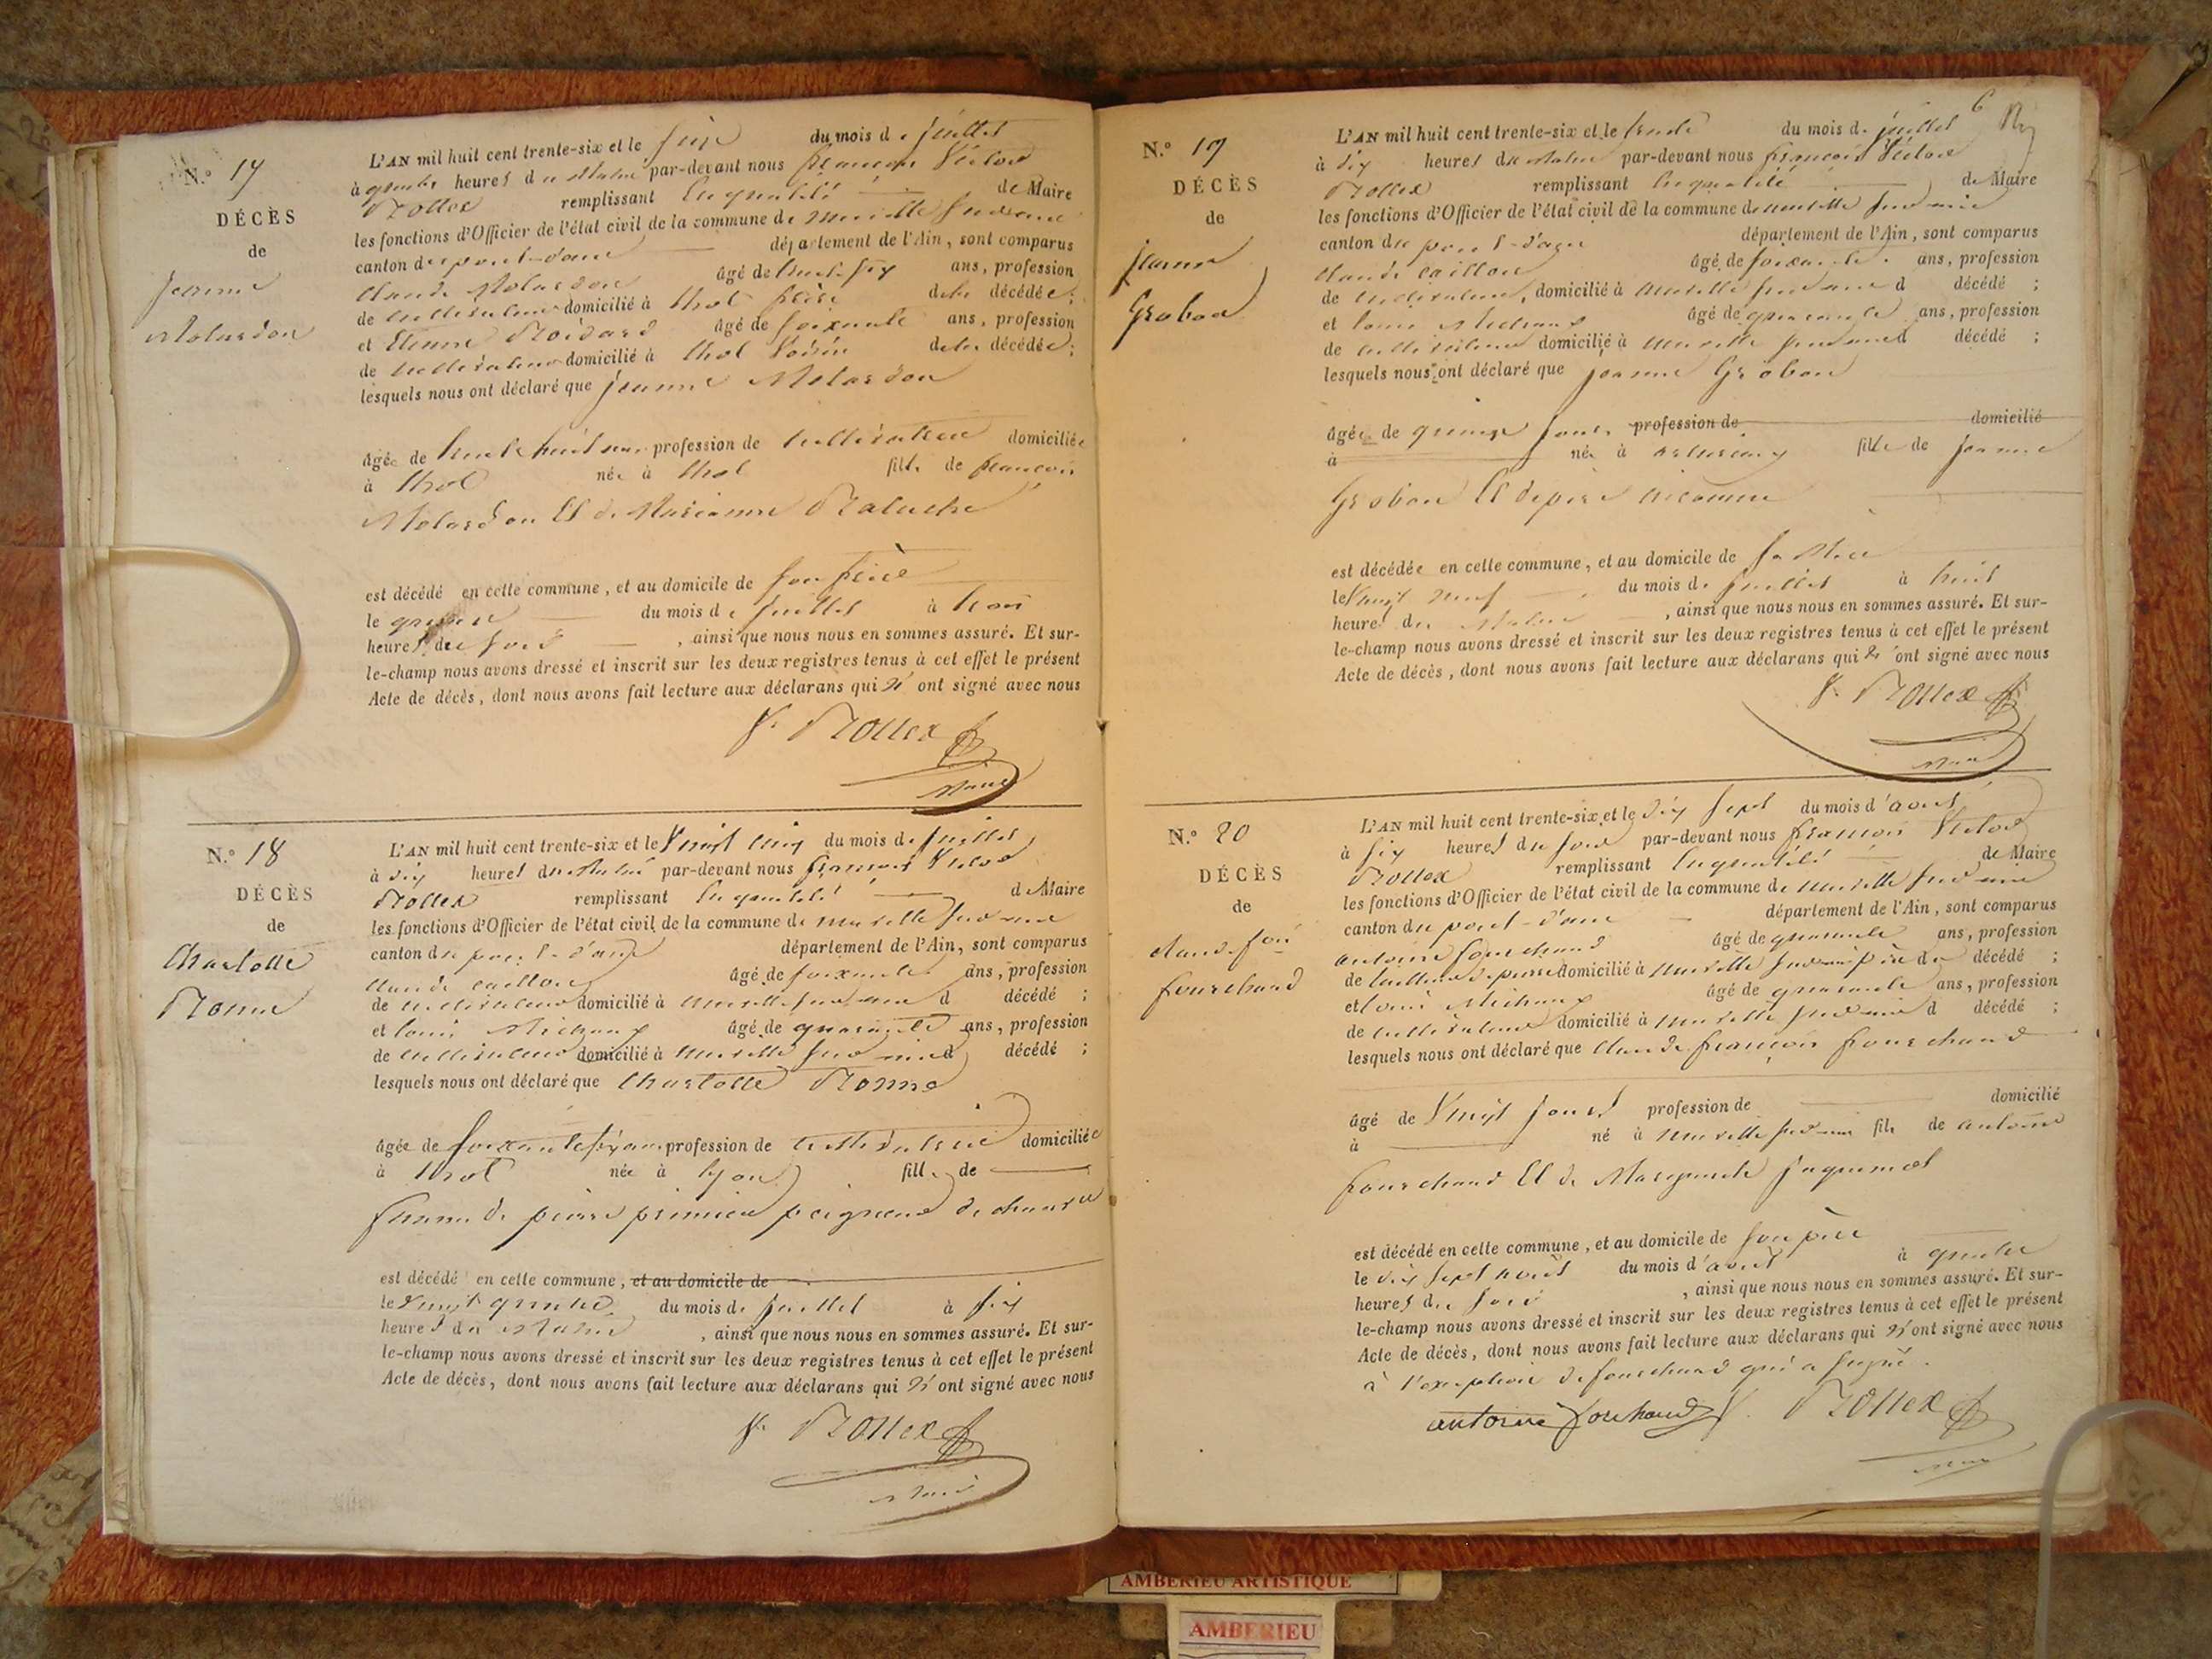 N.º 17
DÉCÈS
de
jeanne
Molardon
L'AN mil huit cent trente-six et le seize du mois de juillet
à quatre heures du Matin par-devant nous françois Victor
Rollex remplissant En qualité de Maire
les fonctions d'Officier de l'état civil de la commune de neuville sur ain
canton du pont-d'ain département de l'Ain, sont comparus
Claude Molardon âgé de trente-six ans, profession
de cultivateur domicilié à thol frère de la décédée;
et Etienne âgé de soixante ans, profession
de cultivateur domicilié à thol Voisin de la décédée;
lesquels nous ont déclaré que jeanne Molardon
âgée de trente huit ans profession de cultivatrice domiciliée
à thol née à thol fille de françois
Molardon Et de Marianne
est décédé en cette commune, et au domicile de son frère
le quinze du mois de juillet à trois
heures du soir, ainsi que nous nous en sommes assuré. Et sur-
le-champ nous avons dressé et inscrit sur les deux registres tenus à cet effet le présent
Acte de décès, dont nous avons fait lecture aux déclarans qui n'ont signé avec nous
V. Rollex
Maire
N.º 18
DÉCÈS
de
Charlotte
Ronne
L'AN mil huit cent trente-six et le Vingt cinq du mois de juillet
à dix heures du Matin par-devant nous françois Victor
Rollex remplissant En qualité de Maire
les fonctions d'Officier de l'état civil de la commune de neuville sur ain
canton du pont-d'ain département de l'Ain, sont comparus
Claude caillon âgé de soixante ans, profession
de cultivateur domicilié à neuville sur ain d décédé;
et louis Michaux âgé de quarante ans, profession
de cultivateur domicilié à neuville sur ain d décédé;
lesquels nous ont déclaré que Charlotte Ronne
âgée de soixante six ans profession de cultivatrice domiciliée
à thol née à lyon fille de
femme de pierre primico peigneur de chanvre
est décédé en cette commune, et au domicile de
le Vingt quatre du mois de juillet à six
heures du Matin, ainsi que nous nous en sommes assuré. Et sur-
le-champ nous avons dressé et inscrit sur les deux registres tenus à cet effet le présent
Acte de décès, dont nous avons fait lecture aux déclarans qui n'ont signé avec nous
V. Rollex
Maire
6
N.º 19
DÉCÈS
de
jeanne
Grobon
L'AN mil huit cent trente-six et le trente du mois de juillet
à dix heures du Matin par-devant nous françois Victor
Rollex remplissant En qualité de Maire
les fonctions d'Officier de l'état civil de la commune de neuville sur ain
canton du pont-d'ain département de l'Ain, sont comparus
Claude caillon âgé de soixante ans, profession
de cultivateur, domicilié à neuville sur ain d décédé;
et louis Michaux âgé de quarante ans, profession
de cultivateur domicilié à neuville sur ain d décédé;
lesquels nous ont déclaré que jeanne Grobon
âgée de quinze jours profession de domicilié
à née à fille de jeanne
Grobon Et de père inconnu
est décédée en cette commune, et au domicile de sa Mère
le Vingt neuf du mois de juillet à huit
heures du Matin, ainsi que nous nous en sommes assuré. Et sur-
le-champ nous avons dressé et inscrit sur les deux registres tenus à cet effet le présent
Acte de décès, dont nous avons fait lecture aux déclarans qui n'ont signé avec nous
V. Rollex
Maire
N.º 20
DÉCÈS
de
claude foix
fourchand
L'AN mil huit cent trente-six et le dix sept du mois d'avril
à six heures du soir par-devant nous françois Victor
Rollex remplissant En qualité de Maire
les fonctions d'Officier de l'état civil de la commune de neuville sur ain
canton du pont-d'ain département de l'Ain, sont comparus
antoine fourchand âgé de quarante ans, profession
de tailleur de pierre domicilié à neuville sur ain père du décédé;
et louis Michaux âgé de quarante ans, profession
de cultivateur domicilié à neuville sur ain d décédé;
lesquels nous ont déclaré que Claude françois fourchand
âgé de Vingt jours profession de domicilié
à né à neuville sur ain fils de antoine
fourchand Et de Marguerite jaquemet
est décédé en cette commune, et au domicile de son père
le dix sept août du mois d'août à quatre
heures du soir, ainsi que nous nous en sommes assuré. Et sur-
le-champ nous avons dressé et inscrit sur les deux registres tenus à cet effet le présent
Acte de décès, dont nous avons fait lecture aux déclarans qui n'ont signé avec nous
à l'exception de fourchand qui a signé.
antoine fourchand V. Rollex
Maire
AMBERIEU ARTISTIQUE
AMBERIEU